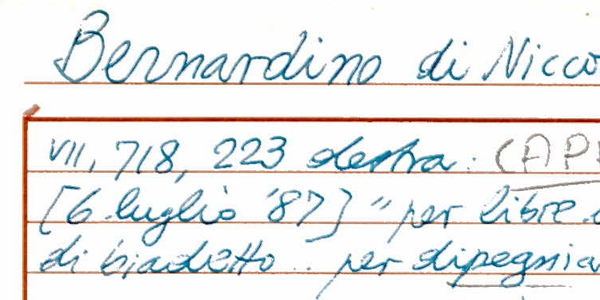 Bernardino di Nicco
VII, 718, 223 destra: (AP
[6 luglio '87] "per libre
di biadetto .. per dipegnia